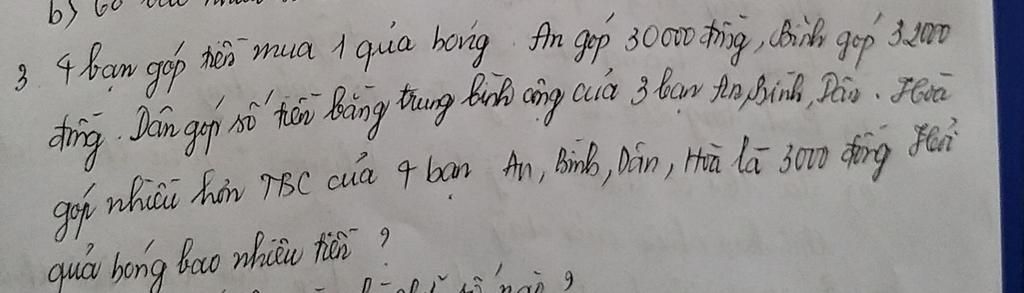 b)
3 4 bạn góp tiền mua 1 quả bóng. An góp 30000 đồng, Bình góp 32000
đồng. Dân góp số tiền bằng trung bình cộng của 3 bạn An, Bình, Dân. Hoà
góp nhiều hơn TBC của 4 bạn An, Bình, Dân, Hoà là 3000 đồng Hỏi
quả bóng bao nhiêu tiền?
số nào?